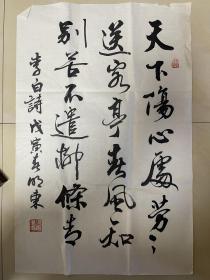 天下傷心處勞々
送客亭春風知
別苦不遣柳條青
李白詩戊寅春明東